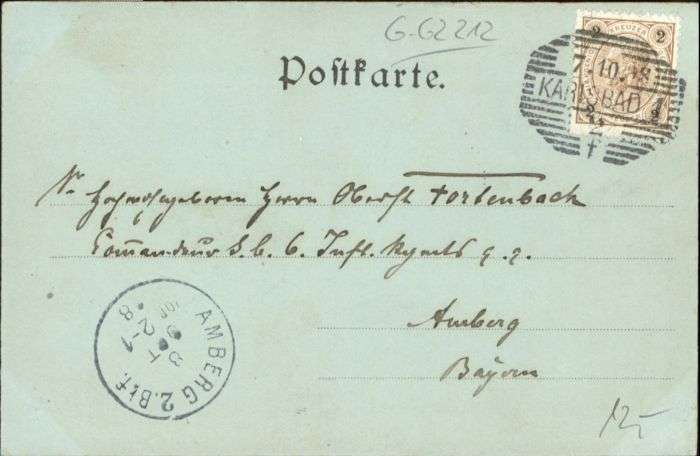 G-G2212
Postkarte.
2 KREUZER 2
7.10.98
KARLSBAD 1
2
Sr Hochwohlgeboren Herrn Oberst Fortenbach
Commandeur d. b. 6. Inft. Regmts q. q.
Amberg
Bayern
AMBERG 2. Btf.
8 OKT
2-1
98
12,-